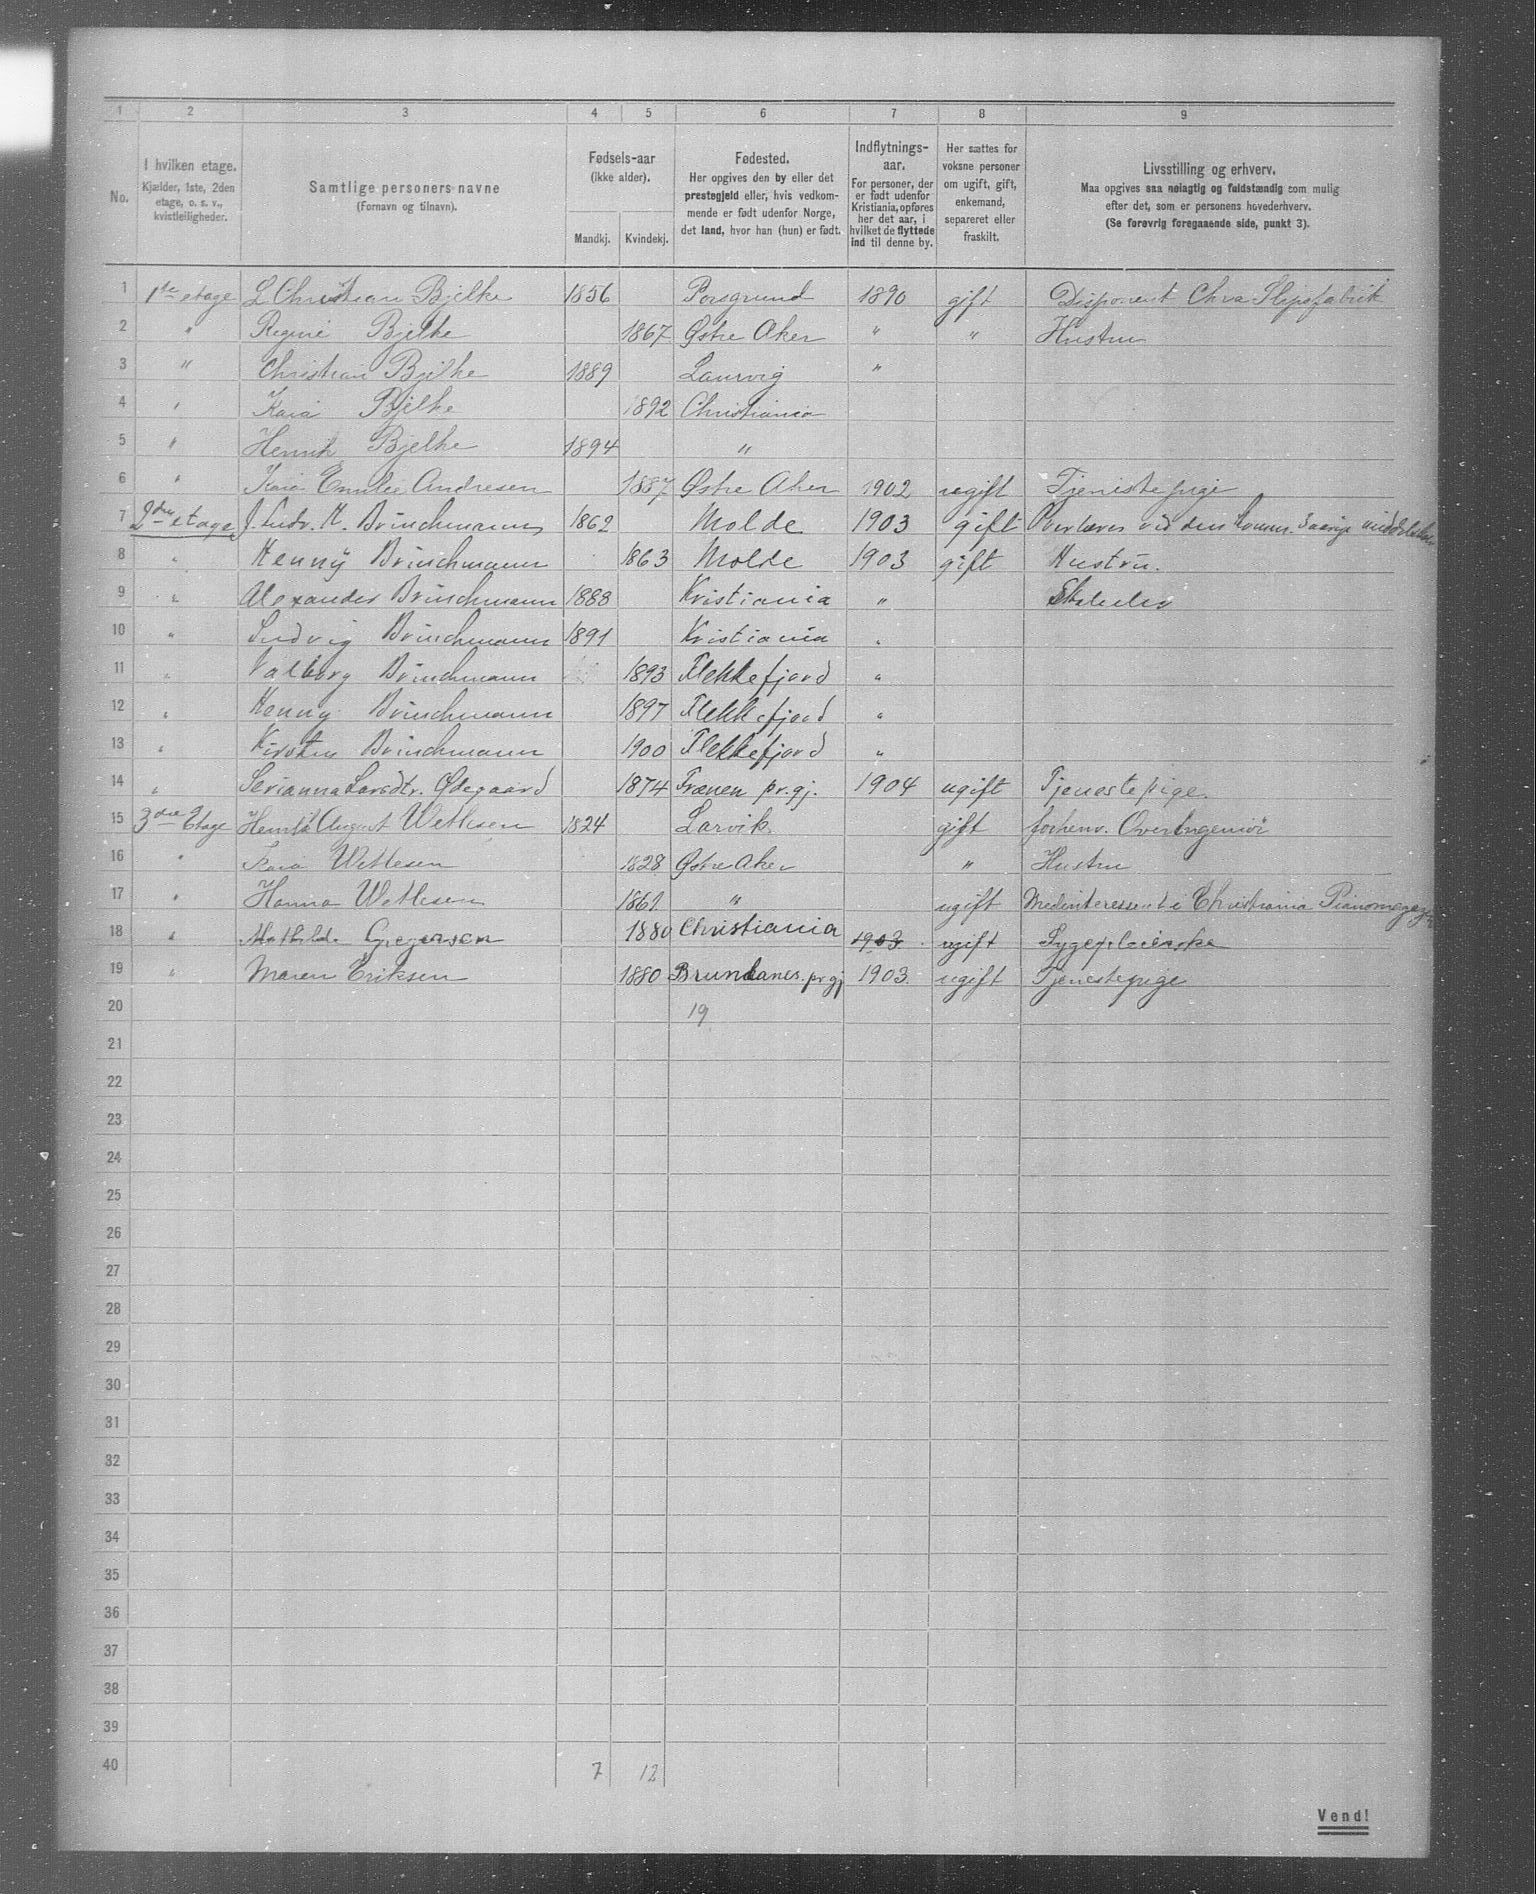 1 2 3 4 5 6 7 8 9
No.
I hvilken etage.
Kjælder, 1ste, 2den
etage, o. s. v.,
kvistleiligheder.
Samtlige personers navne
(Fornavn og tilnavn).
Fødsels-aar
(ikke alder).
Mandkj. Kvindekj.
Fødested.
Her opgives den by eller det
prestegjeld eller, hvis vedkom-
mende er født udenfor Norge,
det land, hvor han (hun) er født.
Indflytnings-
aar.
For personer, der
er født udenfor
Kristiania, opføres
her det aar, i
hvilket de flyttede
ind til denne by.
Her sættes for
voksne personer
om ugift, gift,
enkemand,
separeret eller
fraskilt.
Livsstilling og erhverv.
Maa opgives saa nøiagtig og fuldstændig som mulig
efter det, som er personens hovederhverv.
(Se forøvrig foregaaende side, punkt 3).
1 1ste etage L Christian Bjelke 1856 Porsgrund 1890 gift Disponent Chra Slipsfabrik
2 " Regine Bjelke 1867 Østre Aker " " Hustru
3 " Christian Bjelke 1889 Laurvig "
4 " Kaia Bjelke 1892 Christiania
5 " Henrik Bjelke 1894 "
6 " Kaia Emilie Andresen 1887 Østre Aker 1902 ugift Tjenistepige
7 2den etage J. Ludv. H. Brinchmann 1862 Molde 1903 gift Overlærer ved den komm. 3 aarige
8 " Henny Brinchmann 1863 Molde 1903 gift Hustru.
9 " Alexander Brinchmann 1888 Kristiania "
10 " Ludvig Brinchmann 1891 Kristiania "
11 " Valborg Brinchmann 1893 Flekkefjord "
12 " Henny Brinchmann 1897 Flekkefjord "
13 " Kirsten Brinchmann 1900 Flekkefjord "
14 " Serianna Larsdtr. Ødegaard 1874 Frænen pr.gj. 1904 ugift Tjenestepige.
15 3die Etage Henrik August Wetlesen 1824 Larvik. gift forhenv. Overingeniør
16 " Kaia Wetlesen 1828 Østre Aker " Hustru
17 " Hanna Wetlesen 1861 " ugift Medinteressent i Christiania
18 " Mathilde Gregersen 1880 Christiania 1903 ugift Sygepleierske
19 " Maren Eriksen 1880 Brunlanes. prgj 1903 ugift Tjenestepige
20 19
21
22
23
24
25
26
27
28
29
30
31
32
33
34
35
36
37
38
39
40 7 12
Vend!